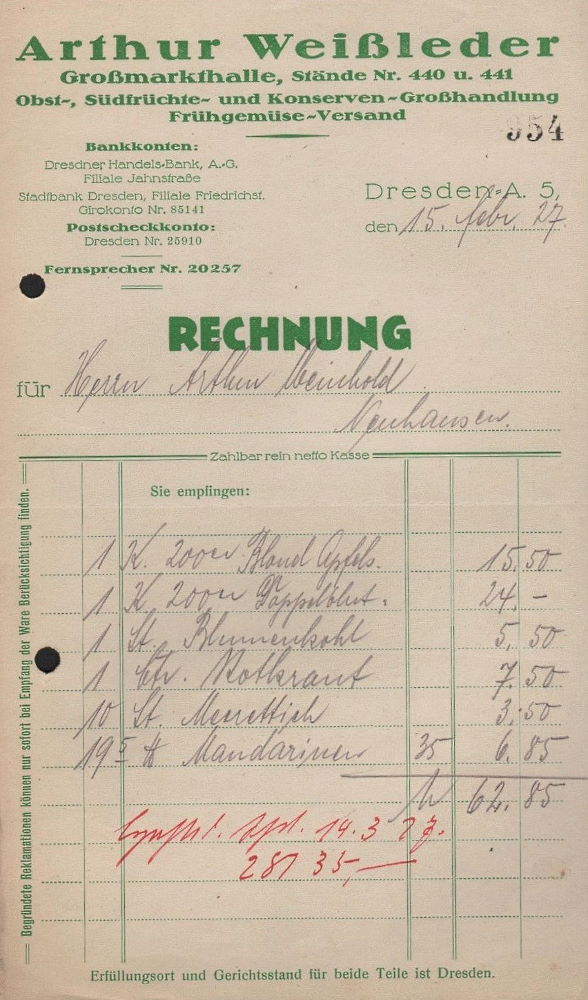 Arthur Weißleder
Großmarkthalle, Stände Nr. 440 u. 441
Obst-, Südfrüchte- und Konserven-Großhandlung
Frühgemüse-Versand
954
Bankkonten:
Dresdner Handels-Bank, A.-G.
Filiale Jahnstraße
Stadtbank Dresden, Filiale Friedrichst.
Girokonto Nr. 85141
Postscheckkonto:
Dresden Nr. 25910
Fernsprecher Nr. 20257
Dresden-A. 5,
den 15. Febr. 27.
RECHNUNG
für Herrn Arthur Weinhold
Neuhausen.
Zahlbar rein netto Kasse
Sie empfingen:
1 K. 200er Blond Apfels. 15.50
1 K. 200er 24.–
1 St. Blumenkohl 5.50
1 Ctr. Rotkraut 7.50
10 St. Meerettich 3.50
19 5 ℔ Mandarinen 35 6.85
M 62.85
14.3 27.
287 35,—
Begründete Reklamationen können nur sofort bei Empfang der Ware Berücksichtigung finden.
Erfüllungsort und Gerichtsstand für beide Teile ist Dresden.